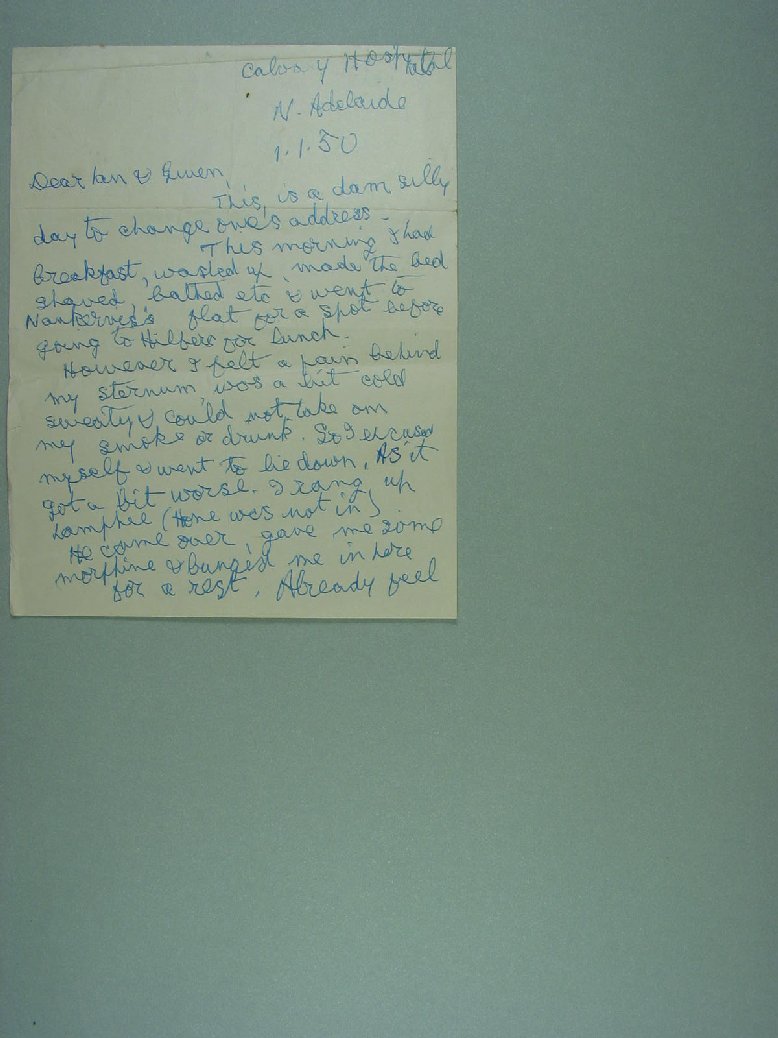 Calvary Hospital
N. Adelaide
1.1.50
Dear Ian & Gwen,
This, is a dam silly
day to change one's address.
This morning I had
breakfast, washed up, made the bed
shaved, bathed etc & went to
Nankervis's flat for a spot before
going to Hilfers for lunch.
However I felt a pain behind
my sternum, was a bit cold
sweaty & could not take on
my smoke or drink. So I excused
myself & went to lie down. As it
got a bit worse. I rang up
Lamphee (Hone was not in)
He came over, gave me some
morphine & bunged me in here
for a rest. Already feel